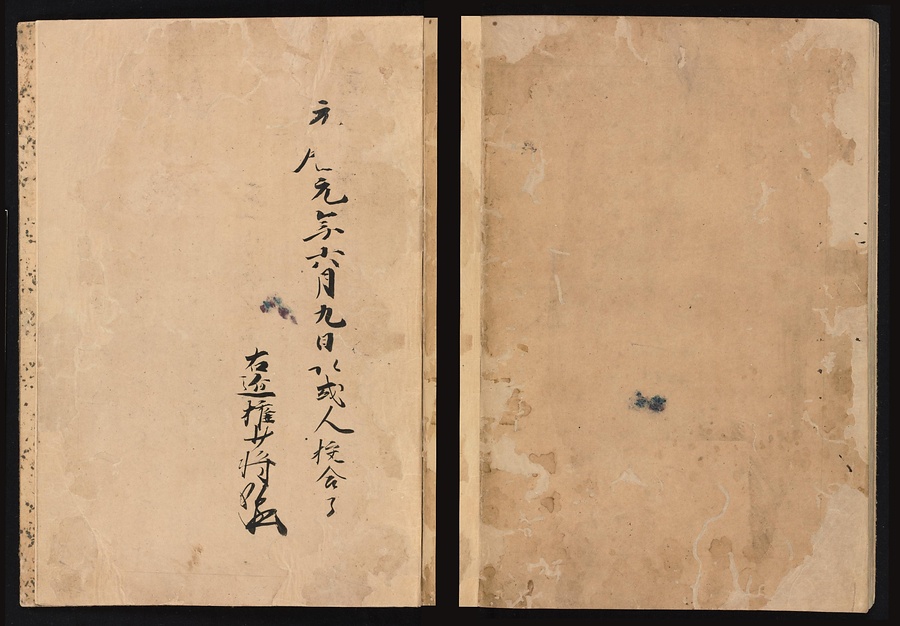 元年六月九日以或人校合了
右近権少将